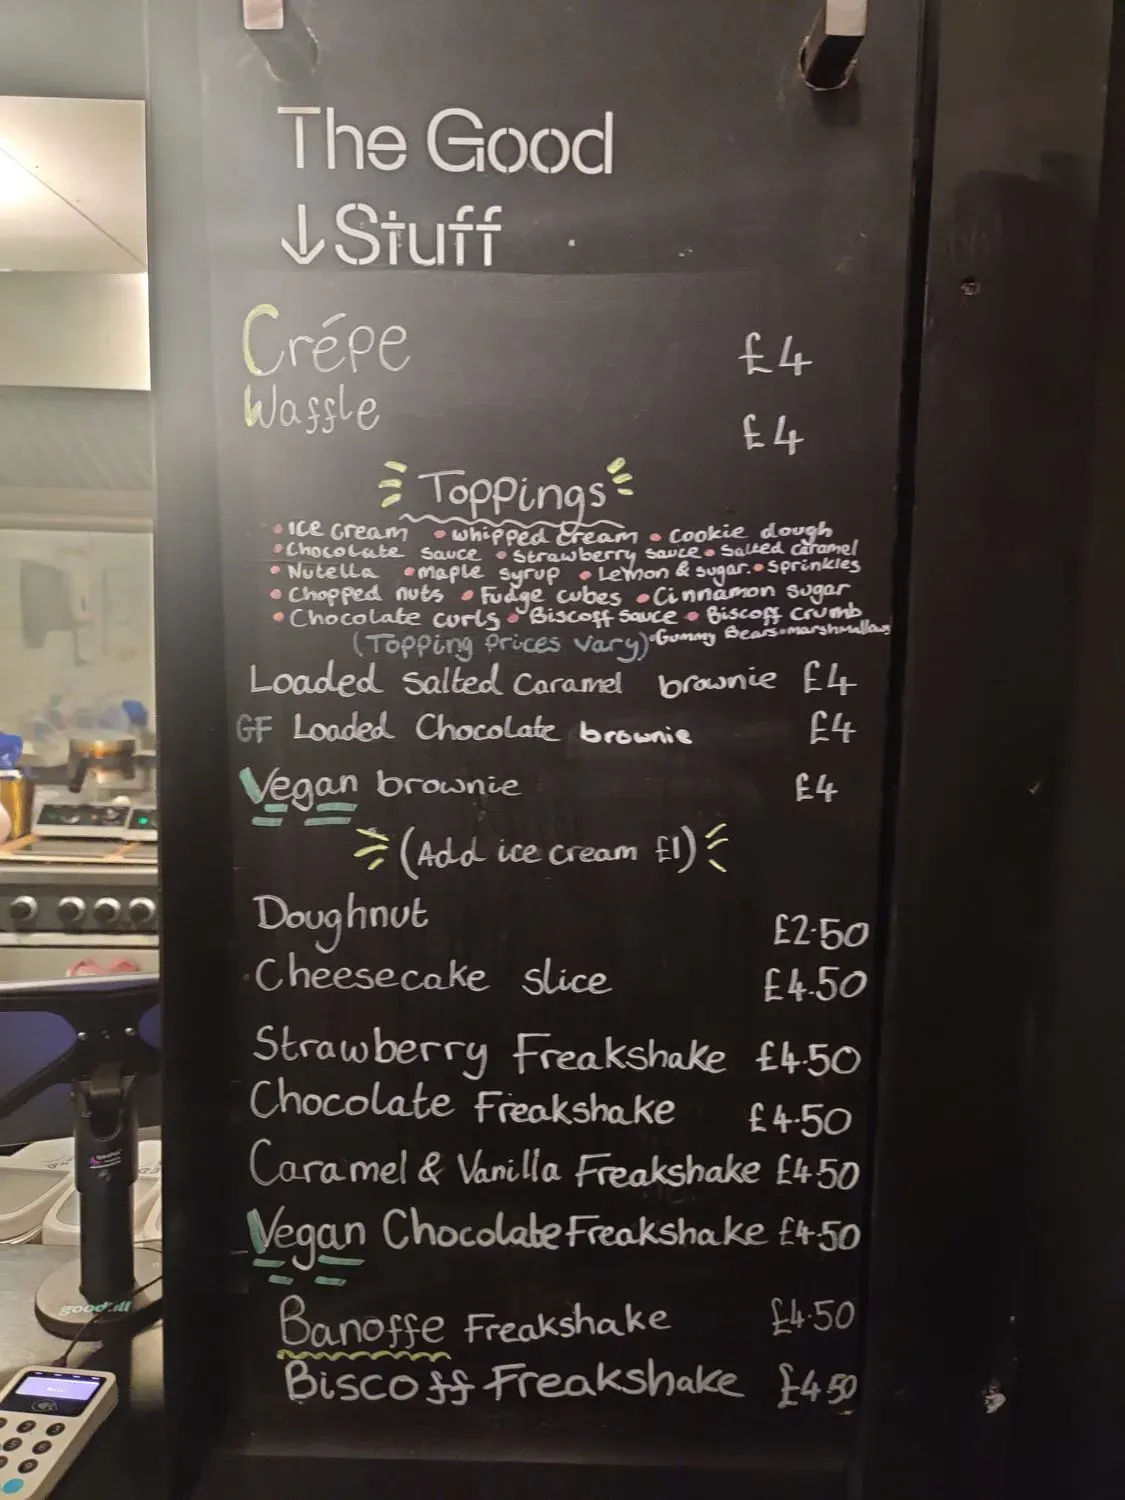 The Good
↓Stuff
Crépe £4
Waffle £4
Toppings
• Ice cream • whipped cream • cookie dough
• Chocolate sauce • Strawberry sauce • Salted caramel
• Nutella • maple syrup • Lemon & sugar. • sprinkles
• Chopped nuts • Fudge cubes • Cinnamon sugar
• Chocolate curls • Biscoff sauce • Biscoff crumb
(Topping prices vary) • Gummy Bears • marshmallows
Loaded Salted Caramel brownie £4
GF Loaded Chocolate brownie £4
Vegan brownie £4
(Add ice cream £1)
Doughnut £2.50
Cheesecake slice £4.50
Strawberry Freakshake £4.50
Chocolate Freakshake £4.50
Caramel & Vanilla Freakshake £4.50
Vegan Chocolate Freakshake £4.50
Banoffe Freakshake £4.50
Biscoff Freakshake £4.50
goodtill